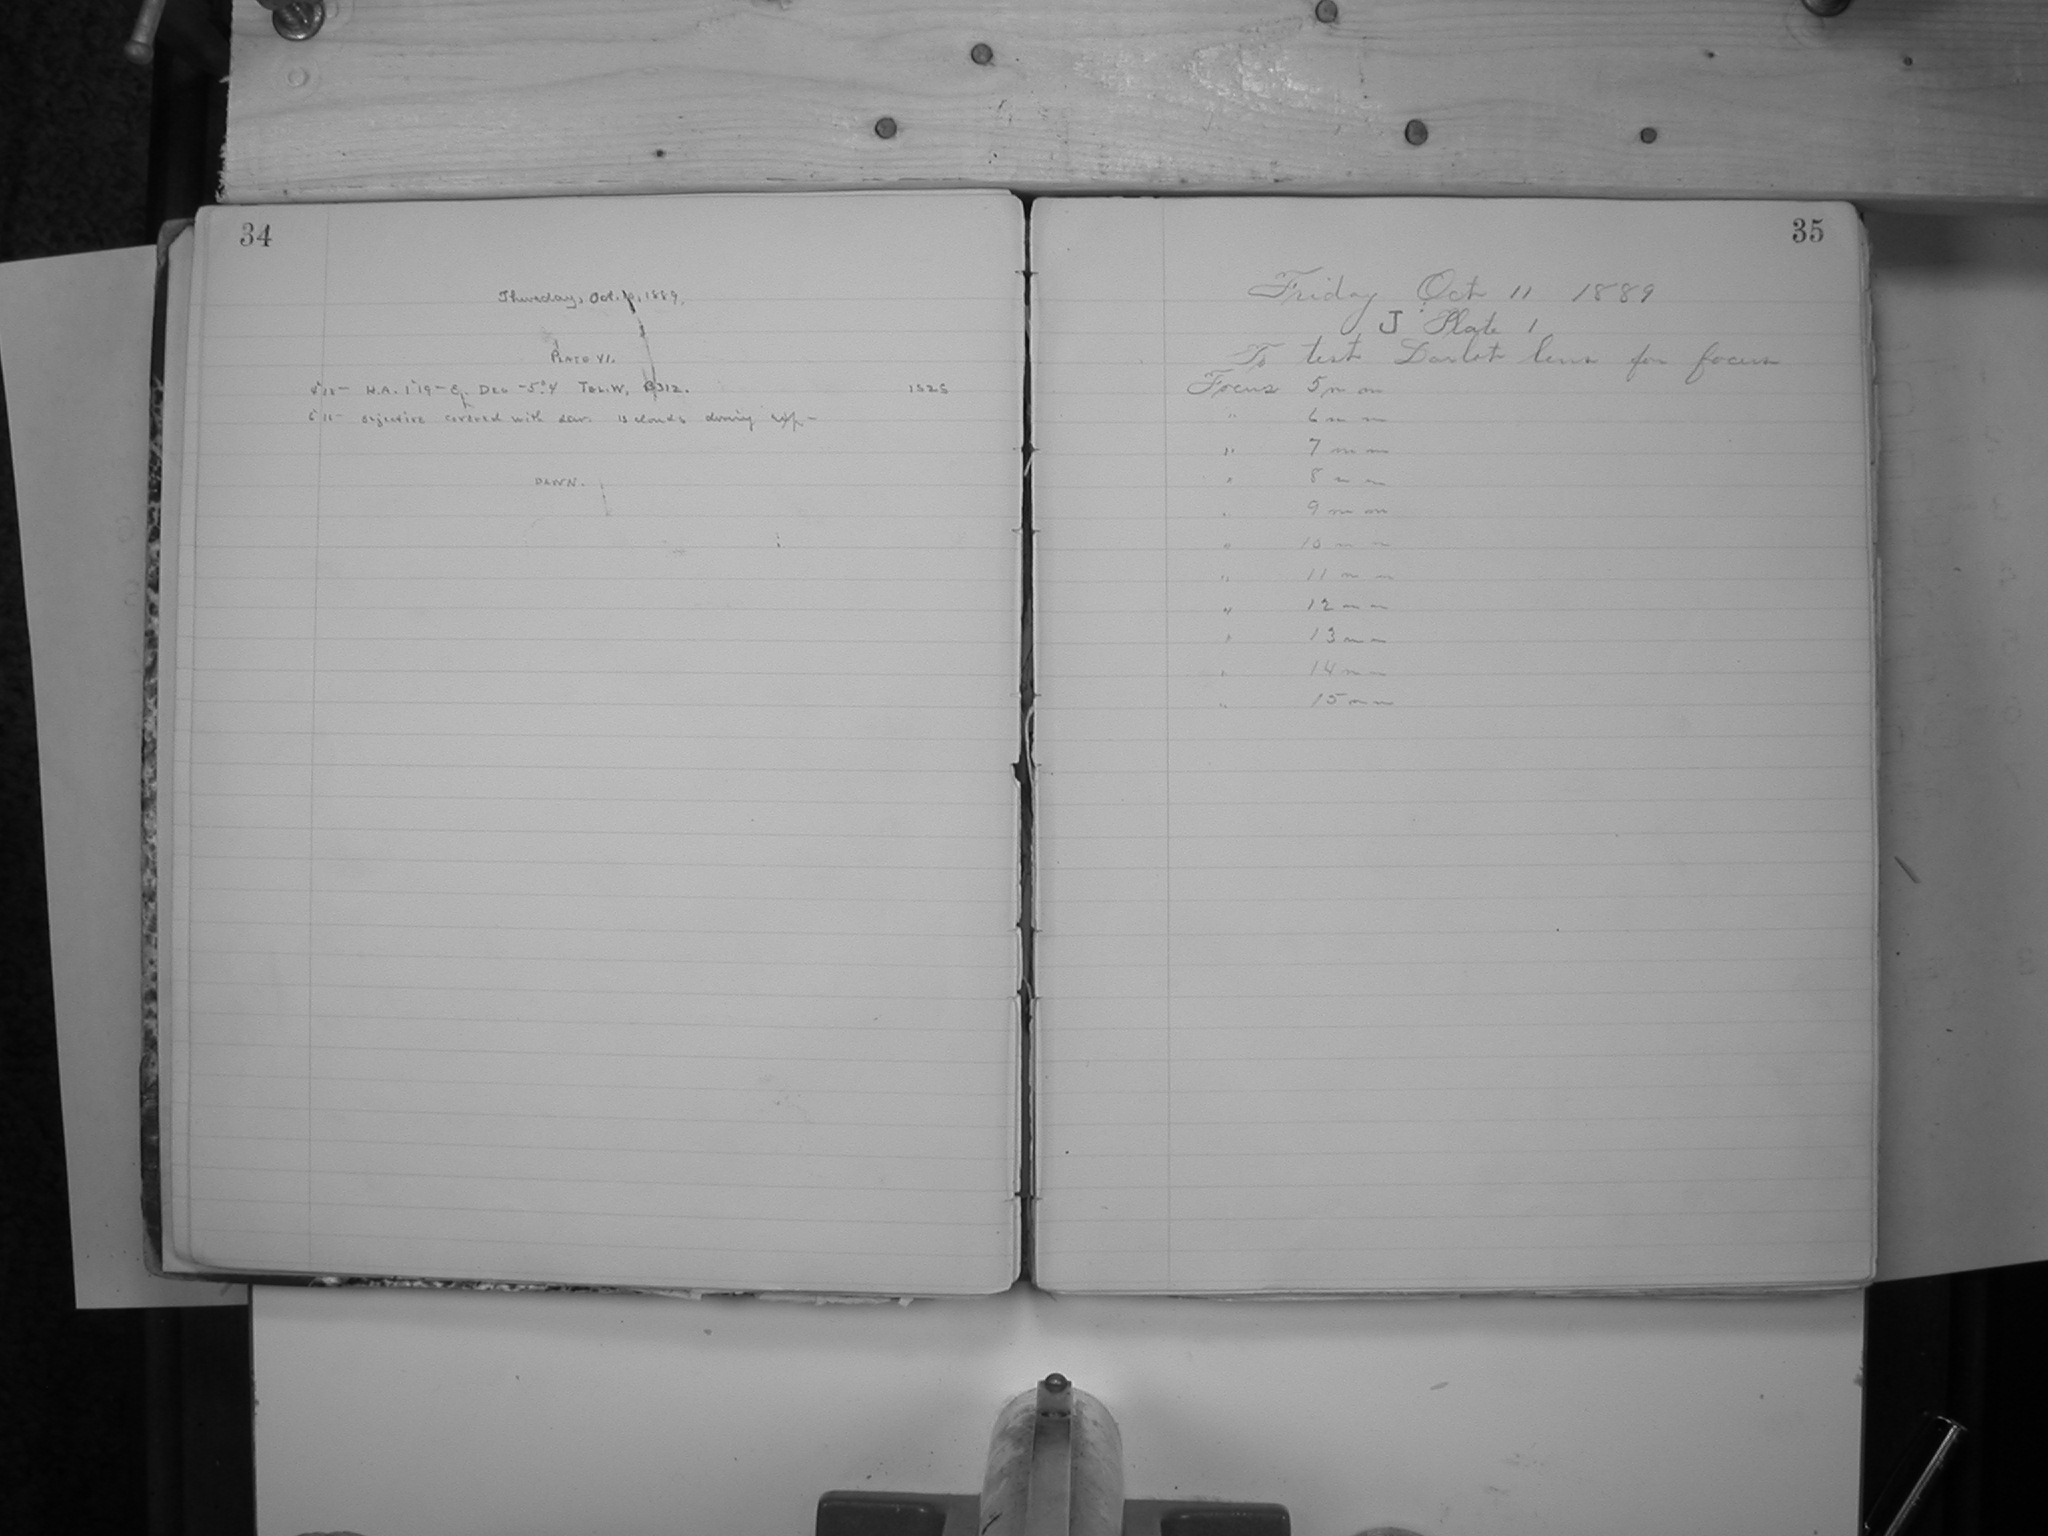 34
Thursday, Oct. 10, 1889.
PLATE VI.
H.A. 1h19m E. DEC -5°.4 TEL.W, B312. 1525
objective covered with dew. 13 clouds during exp-
DAWN.
35
Friday Oct 11 1889
J Plate 1
To test Darlot lens for focus
Focus 5 mm
" 6 mm
" 7 mm
" 8 mm
" 9 mm
" 10 mm
" 11 mm
" 12 mm
" 13 mm
" 14 mm
" 15 mm